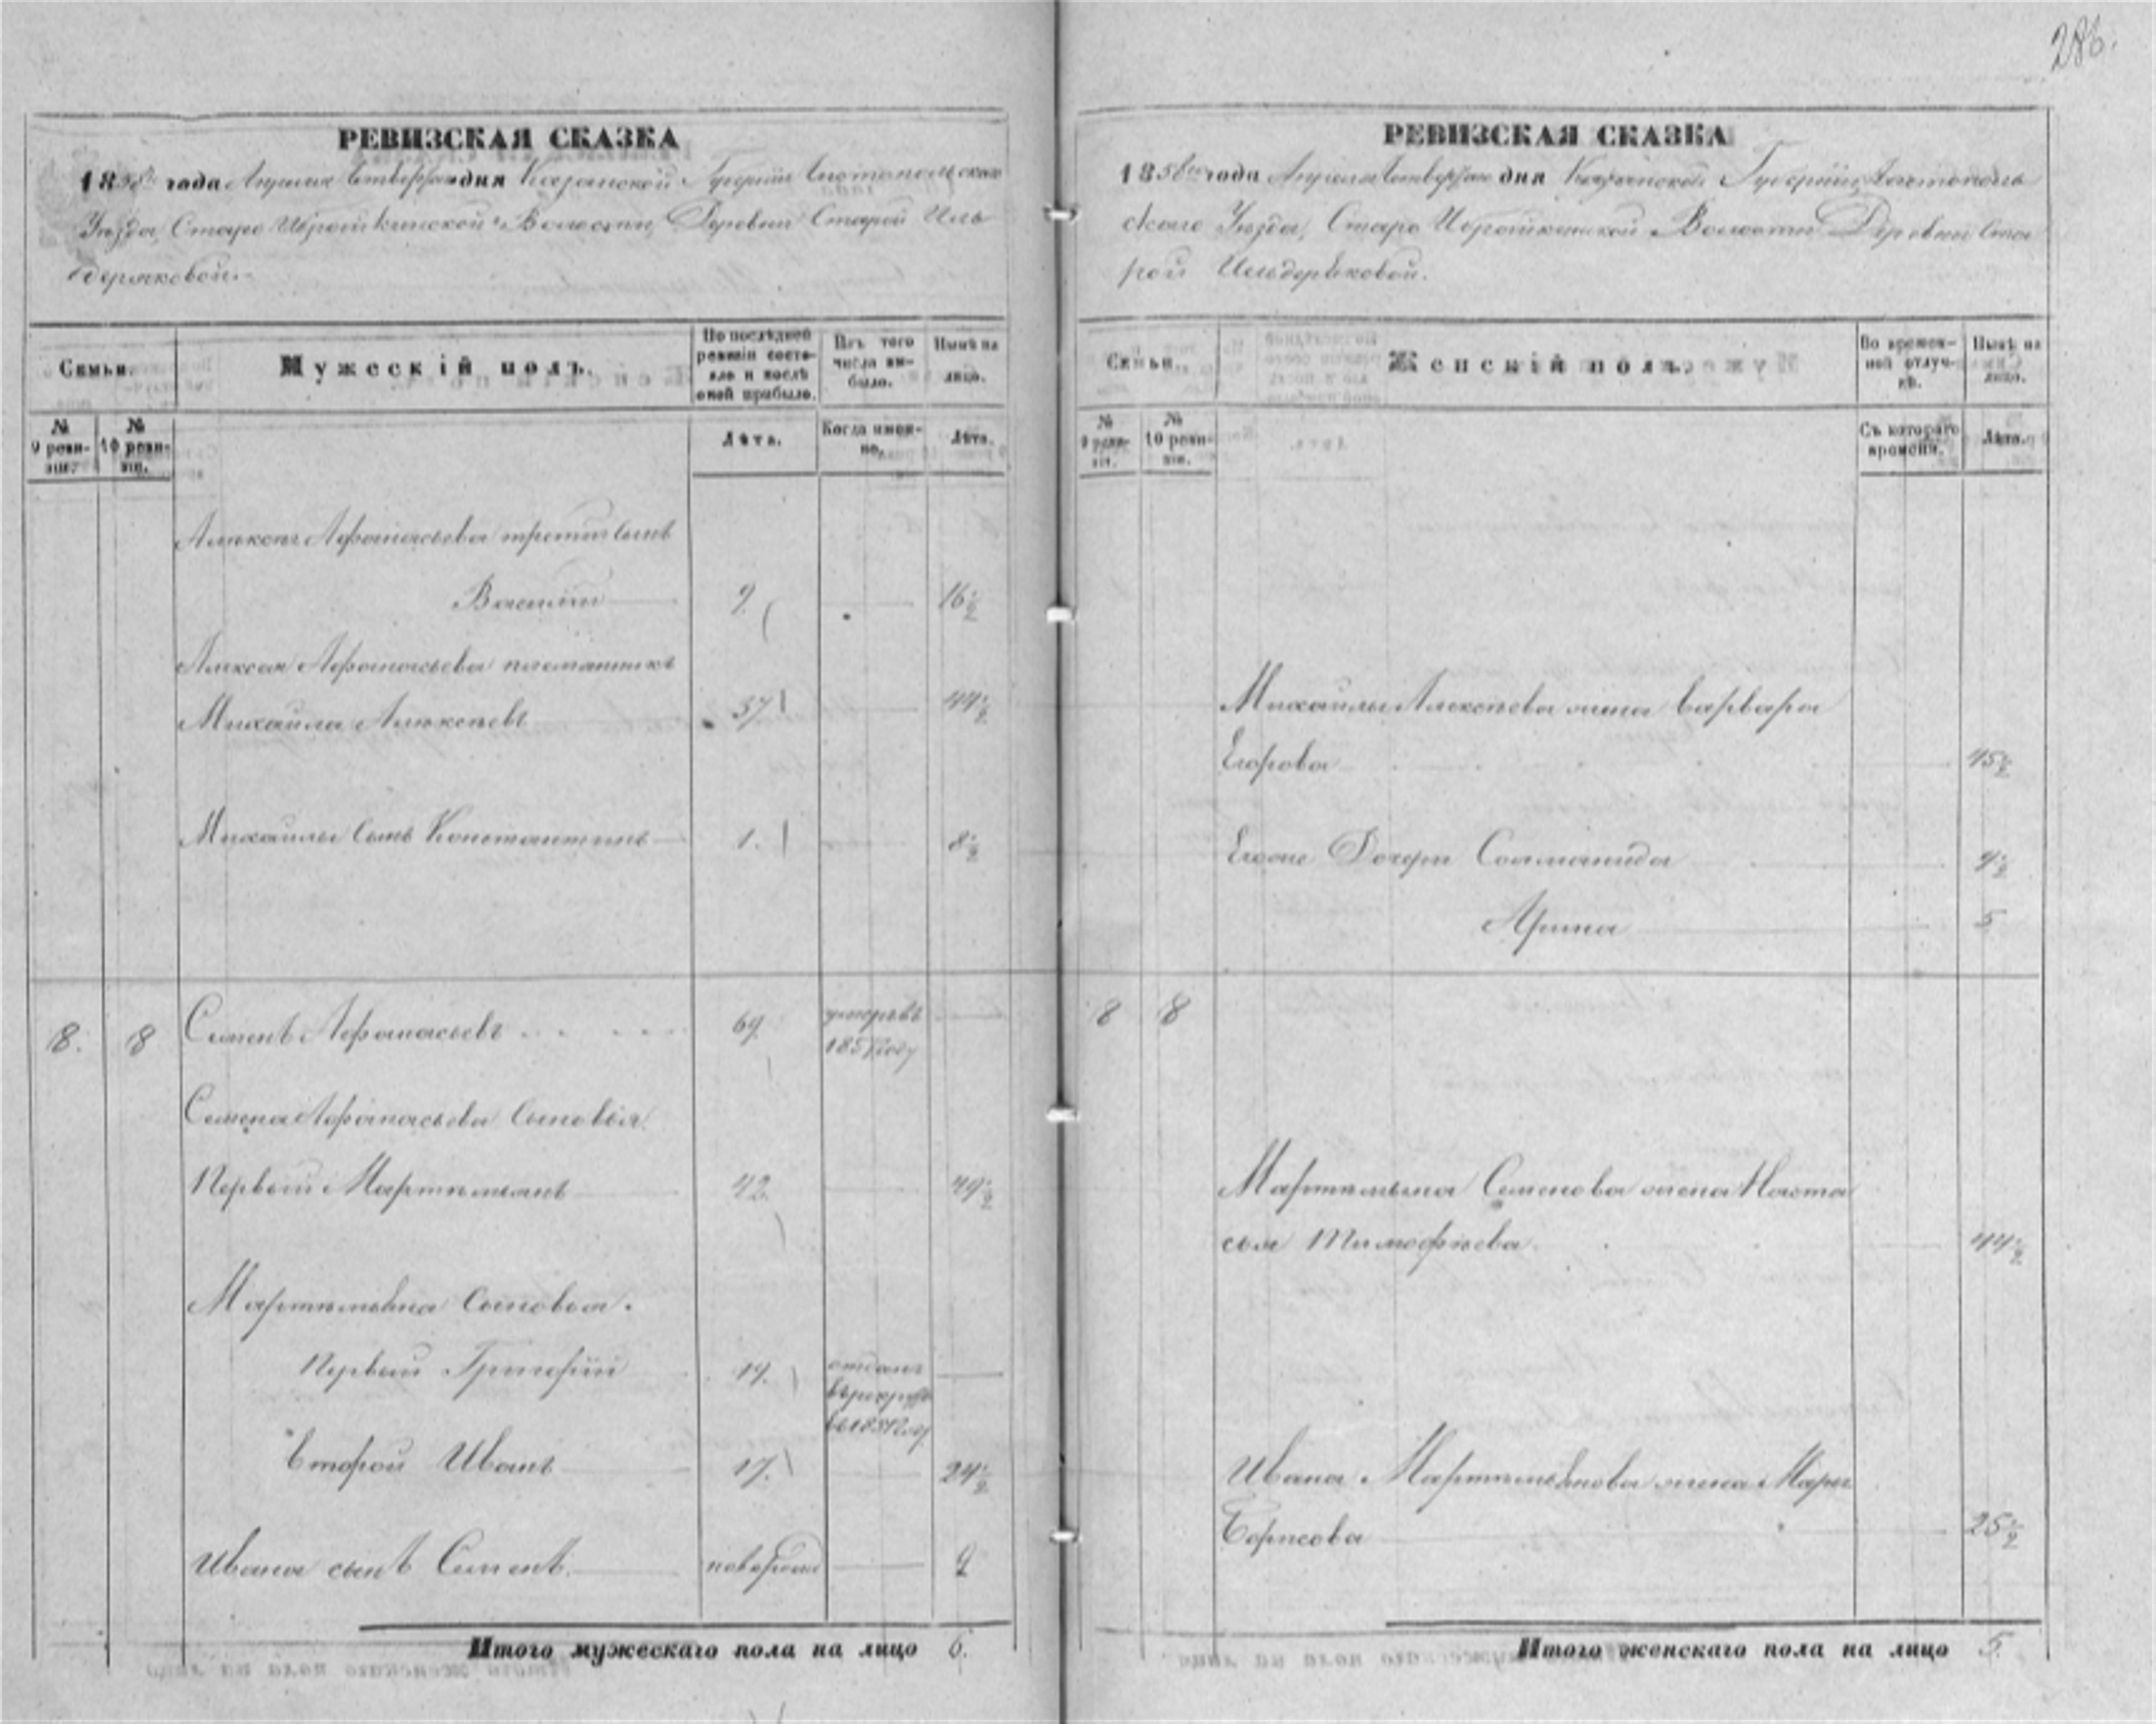 286.
РЕВИЗСКАЯ СКАЗКА
1858го года Апреля четвертаго дня Казанской Губернiи Чистопольскаго
Уѣзда, Старо Ибрайкинской Волости, Деревни Старой Иль
деряковой.
Семьи.
Мужескiй полъ.
По послѣдней ревизiи состояло и послѣ оной прибыло.
Изъ того числа выбыло.
Нынѣ на лицо.
№ 9 ревизiи.
№ 10 ревизiи.
Лѣта.
Когда именно.
Лѣта.
Алексея Афанасьева третiй сынъ
Василiй 9. 16½
Алексея Афанасьева племянникъ
Михайла Алексѣевъ 37 44½
Михайлы сынъ Константинъ 1. 8½
8. 8 Семенъ Афанасьевъ 69. умеръ въ
1857 году
Семена Афанасьева сыновья:
Первый Мартемьянъ 42. 49½
Мартемьяна сыновья.
Первый Григорiй 19. отданъ
въ рекруты
въ 1851 году
Второй Иванъ 17. 24½
Ивана сынъ Семенъ новорожд 2
Итого мужескаго пола на лицо 6.
РЕВИЗСКАЯ СКАЗКА
1858го года Апреля четвертаго дня Казанской Губернiи, Чистополь
скаго Уѣзда, Старо Ибрайкинской Волости Деревни Ста
рой Ильдеряковой.
Семьи.
Женскiй полъ.
Во временной отлучкѣ.
Нынѣ на лицо.
№ 9 ревизiи.
№ 10 ревизiи.
Съ котораго времени.
Лѣта.
Михайлы Алексѣева жена Варвара
Егорова 45½
Ихъ Дочери Соломанида 9½
Арина 5
8 8
Мартемьяна Семенова жена Наста
сья Тимофѣева 44½
Ивана Мартемьянова жена Марья
Борисова 25½
Итого женскаго пола на лицо 5.